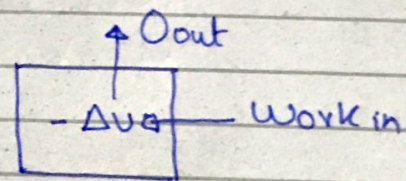 Qout
- ΔU
Work in